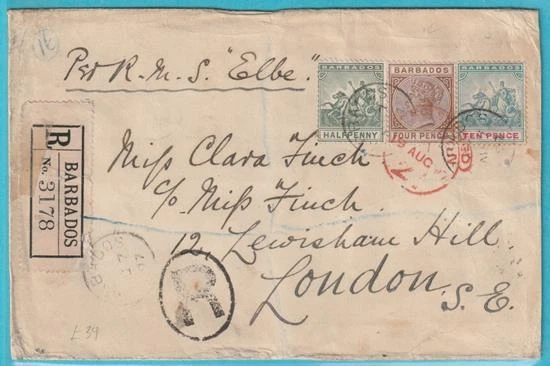 Per R.M.S. "Elbe".
BARBADOS
HALFPENNY
BARBADOS
FOUR PENCE
BARBADOS
TEN PENCE
R
BARBADOS
No. 3178
AUG
Miss Clara Finch
c/o Miss Finch.
12, Lewisham Hill.
London.
S.E.
R
£39